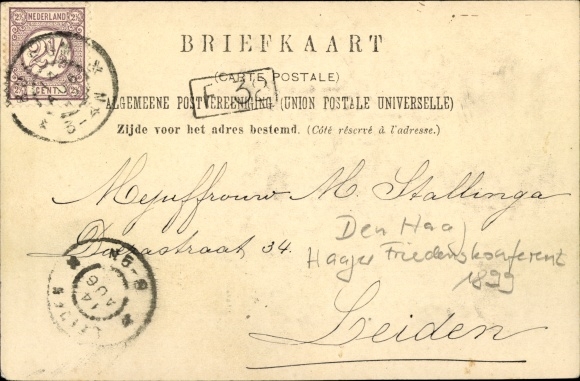 NEDERLAND
2½
CENT
BRIEFKAART
(CARTE POSTALE)
ALGEMEENE POSTVEREENIGING (UNION POSTALE UNIVERSELLE)
Zijde voor het adres bestemd. (Côté réservé à l'adresse.)
F 32
3-4N
Mejuffrouw M. Stallinga
34.
Den Haag
Haager Friedenskonferent
1899
8-9N
14
AUG
LEIDEN
Leiden